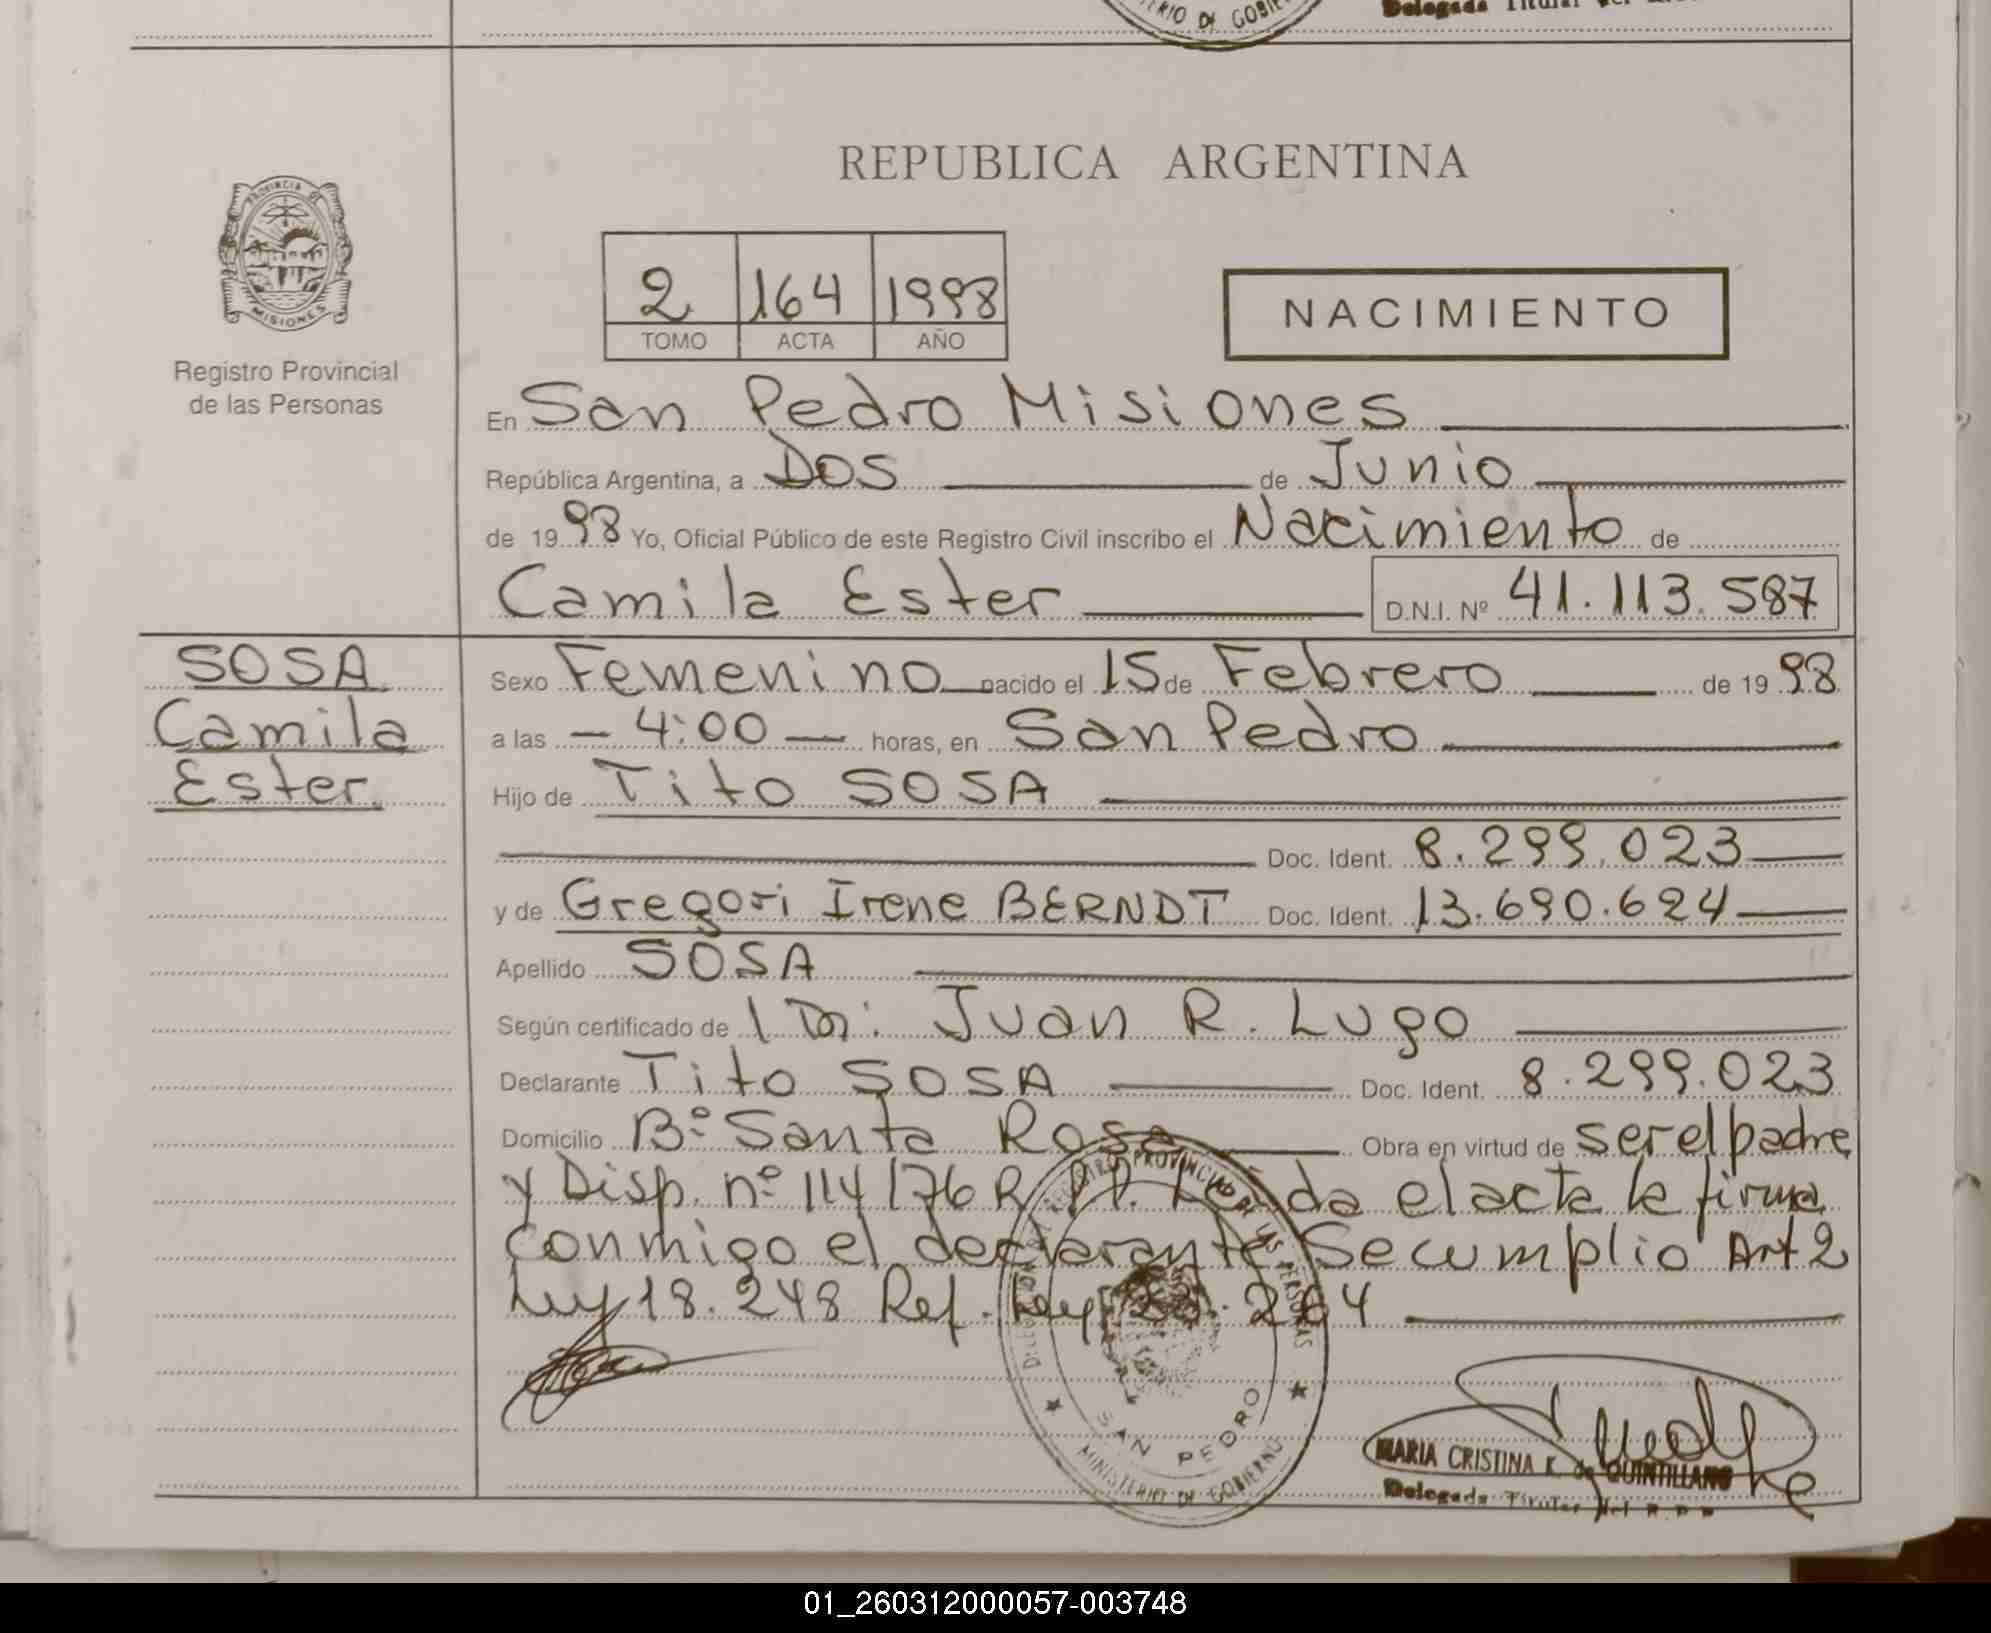 REPUBLICA ARGENTINA
PROVINCIA DE
MISIONES
Registro Provincial
de las Personas
2 164 1998
TOMO ACTA AÑO
NACIMIENTO
En San Pedro Misiones
República Argentina, a Dos de Junio
de 1998 Yo, Oficial Público de este Registro Civil inscribo el Nacimiento de
Camila Ester D.N.I. Nº 41.113.587
SOSA
Camila
Ester.
Sexo Femenino nacido el 15 de Febrero de 1998
a las - 4:00 - horas, en San Pedro
Hijo de Tito SOSA
Doc. Ident. 8.299.023
y de Gregori Irene BERNDT Doc. Ident. 13.690.624
Apellido SOSA
Según certificado de Juan R. Lugo
Declarante Tito SOSA Doc. Ident. 8.299.023
Domicilio Bº Santa Rosa Obra en virtud de ser el padre
y Disp. nº 114/76 R. el acta la firma
conmigo el declarante Se cumplio Art 2
Ley 18.248 Ref. Ley 23.264
REGISTRO PROVINCIAL DE LAS PERSONAS
SAN PEDRO
MINISTERIO DE GOBIERNO
MARIA CRISTINA K. de QUINTILLANO
Delegada Titular del R.P.P.
01_260312000057-003748